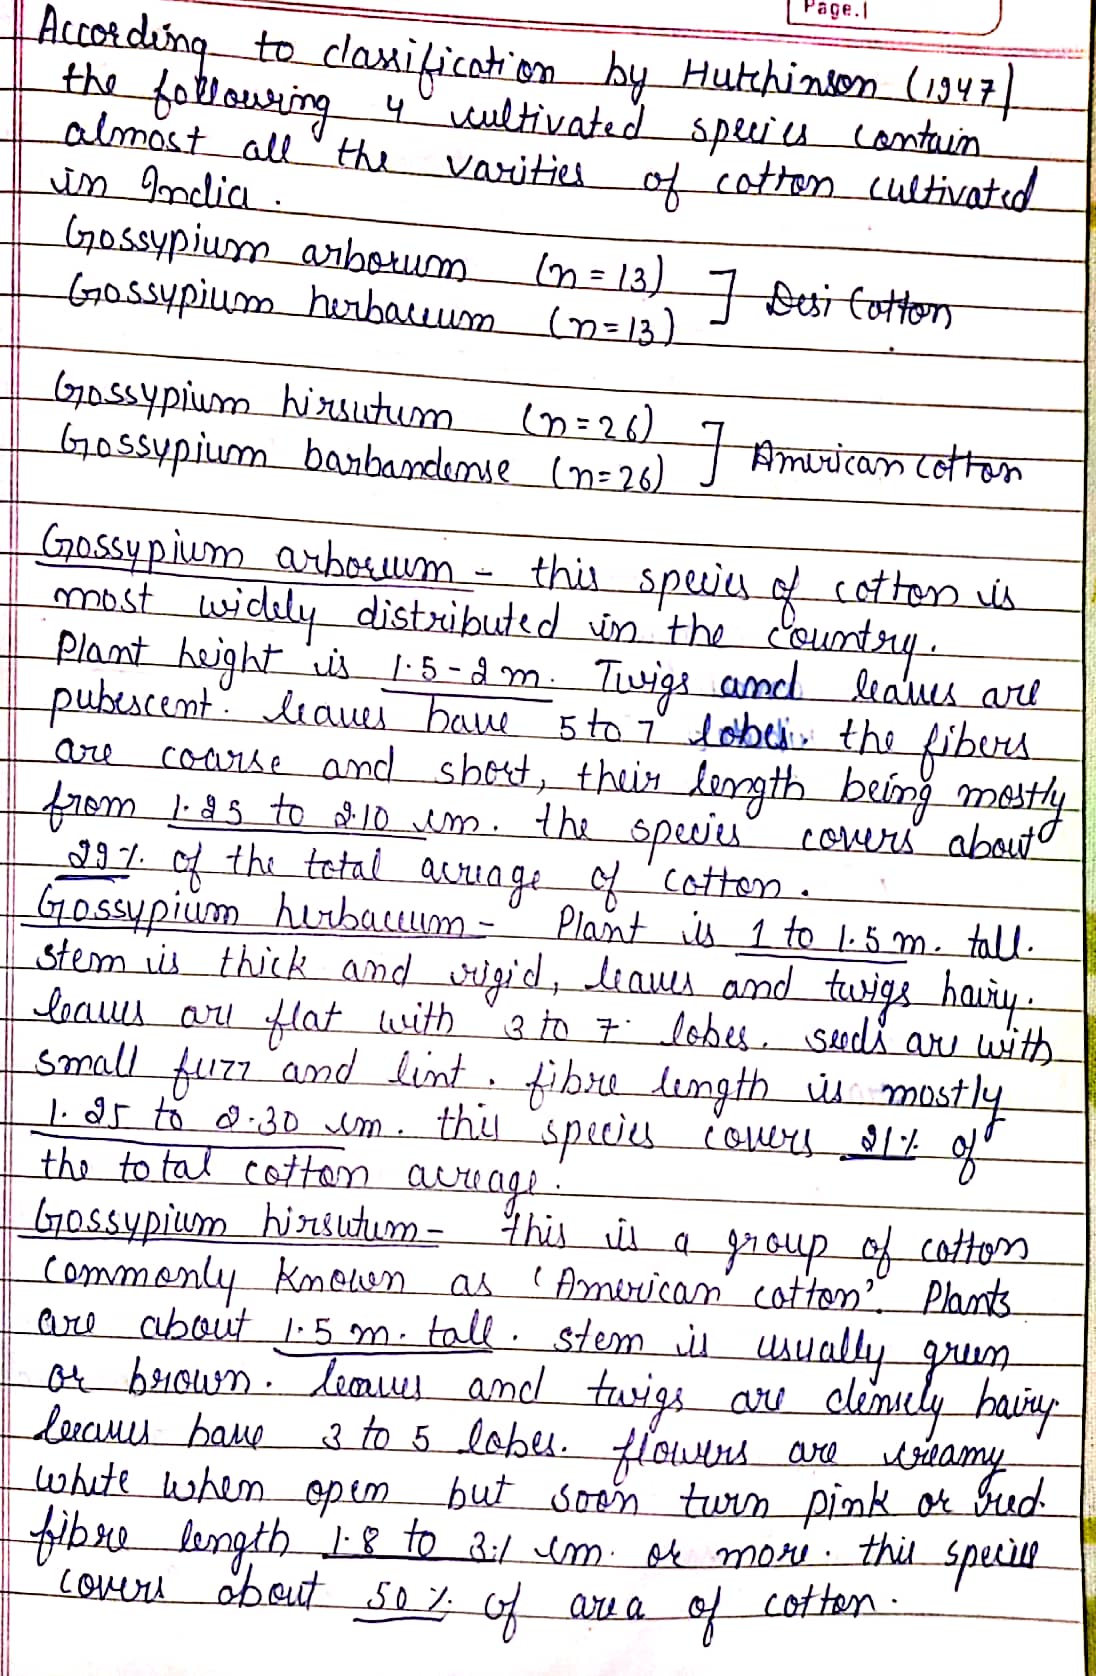 Page.1
According to classification by Hutchinson (1947)
the following 4 cultivated species contain
almost all the varities of cotton cultivated
in India.
Gossypium arborum (n=13) ] Desi Cotton
Gossypium herbaceum (n=13)
Gossypium hirsutum (n=26) ] American cotton
Gossypium barbandense (n=26)
Gossypium arboreum - this species of cotton is
most widely distributed in the country.
Plant height is 1.5-2 m. Twigs and leaves are
pubescent. leaves have 5 to 7 lobes. the fibers
are coarse and short, their length being mostly
from 1.25 to 2.10 cm. the species covers about
29%. of the total acreage of cotton.
Gossypium herbaceum - Plant is 1 to 1.5 m. tall.
stem is thick and rigid, leaves and twigs hairy.
leaves are flat with 3 to 7 lobes. seeds are with
small fuzz and lint. fibre length is mostly
1.25 to 2.30 cm. this species covers 21%. of
the total cotton acreage.
Gossypium hirsutum - This is a group of cotton
commonly known as 'American cotton'. Plants
are about 1.5 m. tall. stem is usually green
or brown. leaves and twigs are densely hairy.
leaves have 3 to 5 lobes. flowers are creamy
white when open but soon turn pink or red.
fibre length 1.8 to 3.1 cm. or more. this species
covers about 50%. of area of cotton.